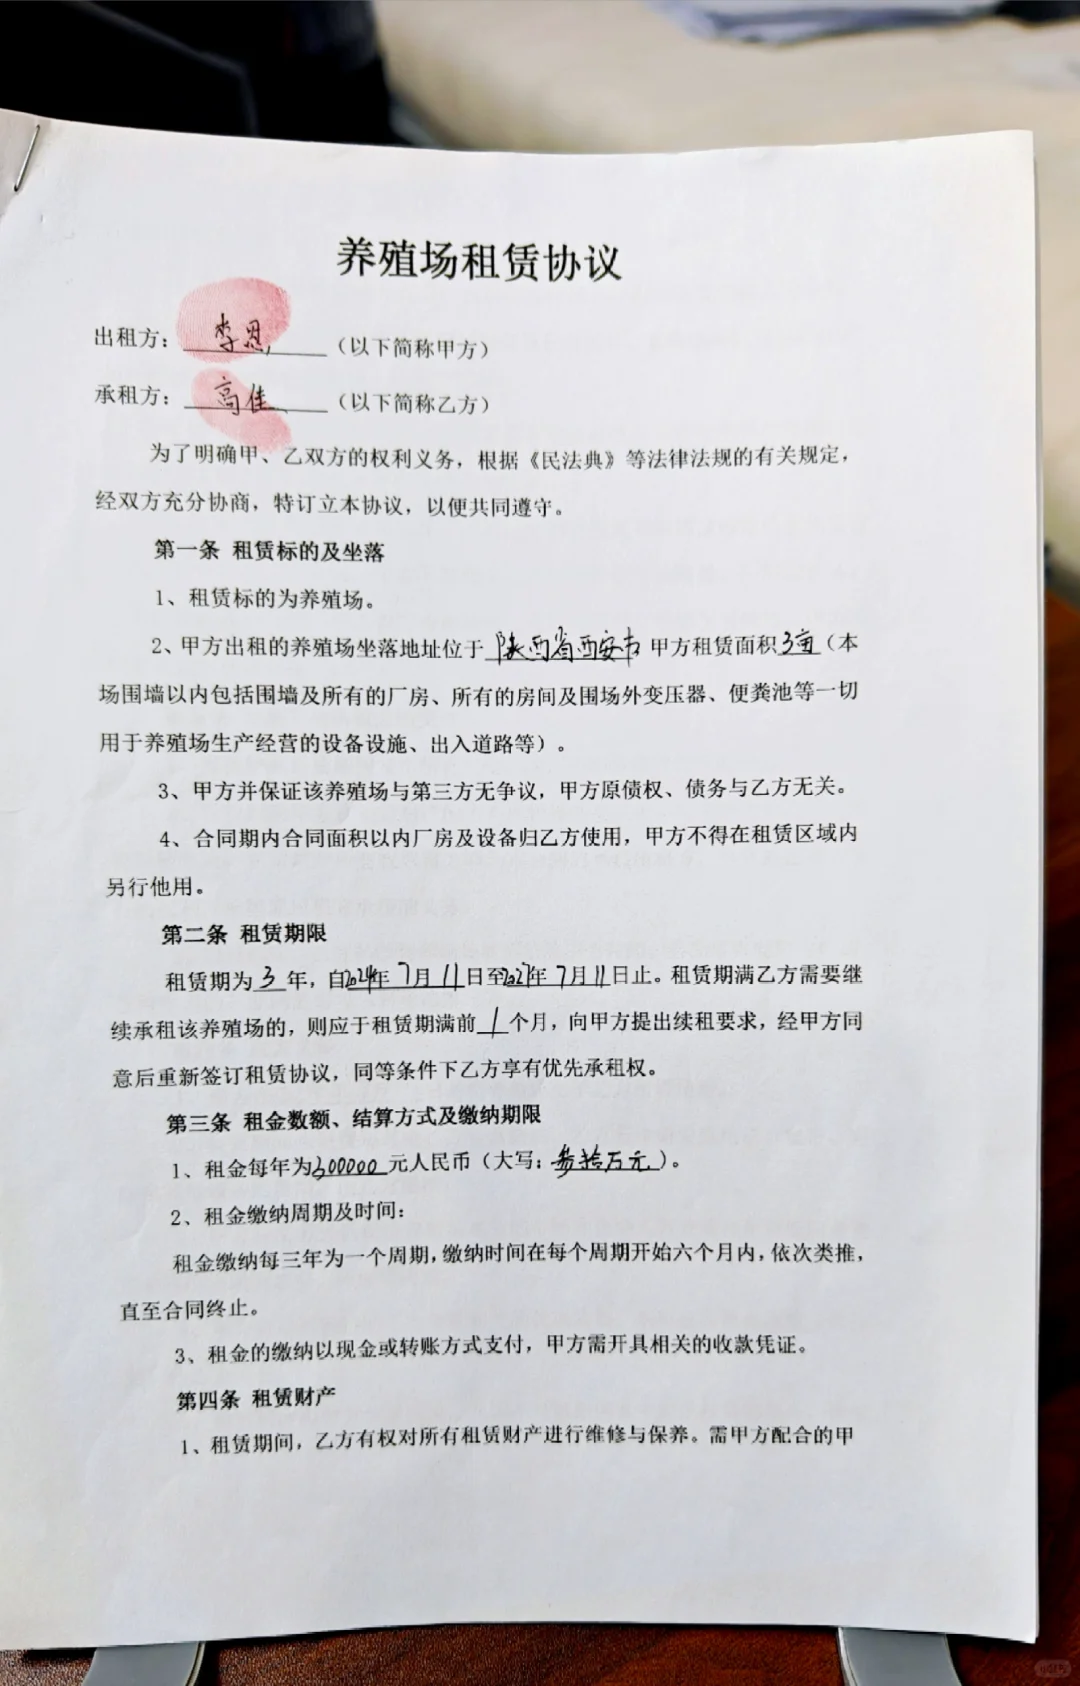 养殖场租赁协议
出租方：李恩（以下简称甲方）
承租方：高佳（以下简称乙方）
为了明确甲、乙双方的权利义务，根据《民法典》等法律法规的有关规定，
经双方充分协商，特订立本协议，以便共同遵守。
第一条 租赁标的及坐落
1、租赁标的为养殖场。
2、甲方出租的养殖场坐落地址位于陕西省西安市甲方租赁面积3亩（本
场围墙以内包括围墙及所有的厂房、所有的房间及围场外变压器、便粪池等一切
用于养殖场生产经营的设备设施、出入道路等）。
3、甲方并保证该养殖场与第三方无争议，甲方原债权、债务与乙方无关。
4、合同期内合同面积以内厂房及设备归乙方使用，甲方不得在租赁区域内
另行他用。
第二条 租赁期限
租赁期为3年，自2024年7月11日至2027年7月11日止。租赁期满乙方需要继
续承租该养殖场的，则应于租赁期满前1个月，向甲方提出续租要求，经甲方同
意后重新签订租赁协议，同等条件下乙方享有优先承租权。
第三条 租金数额、结算方式及缴纳期限
1、租金每年为300000元人民币（大写：叁拾万元）。
2、租金缴纳周期及时间：
租金缴纳每三年为一个周期，缴纳时间在每个周期开始六个月内，依次类推，
直至合同终止。
3、租金的缴纳以现金或转账方式支付，甲方需开具相关的收款凭证。
第四条 租赁财产
1、租赁期间，乙方有权对所有租赁财产进行维修与保养。需甲方配合的甲